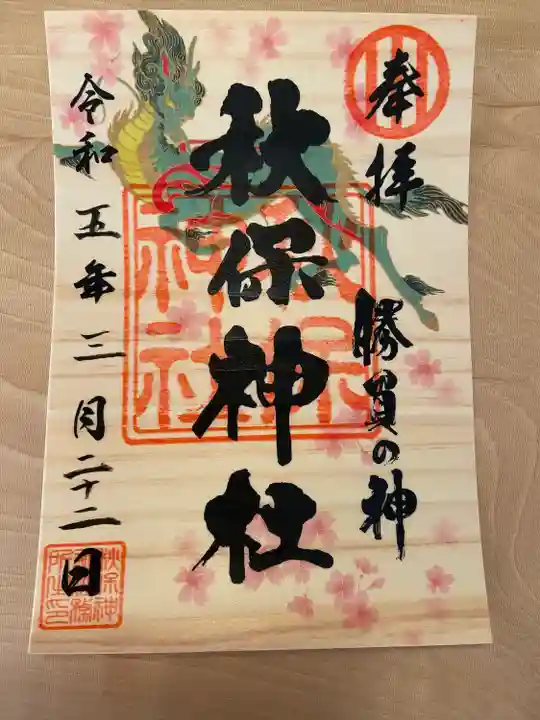 奉拝
勝負の神
秋保神社
秋保
神社
令和五年三月二十二日
秋保神
所之印